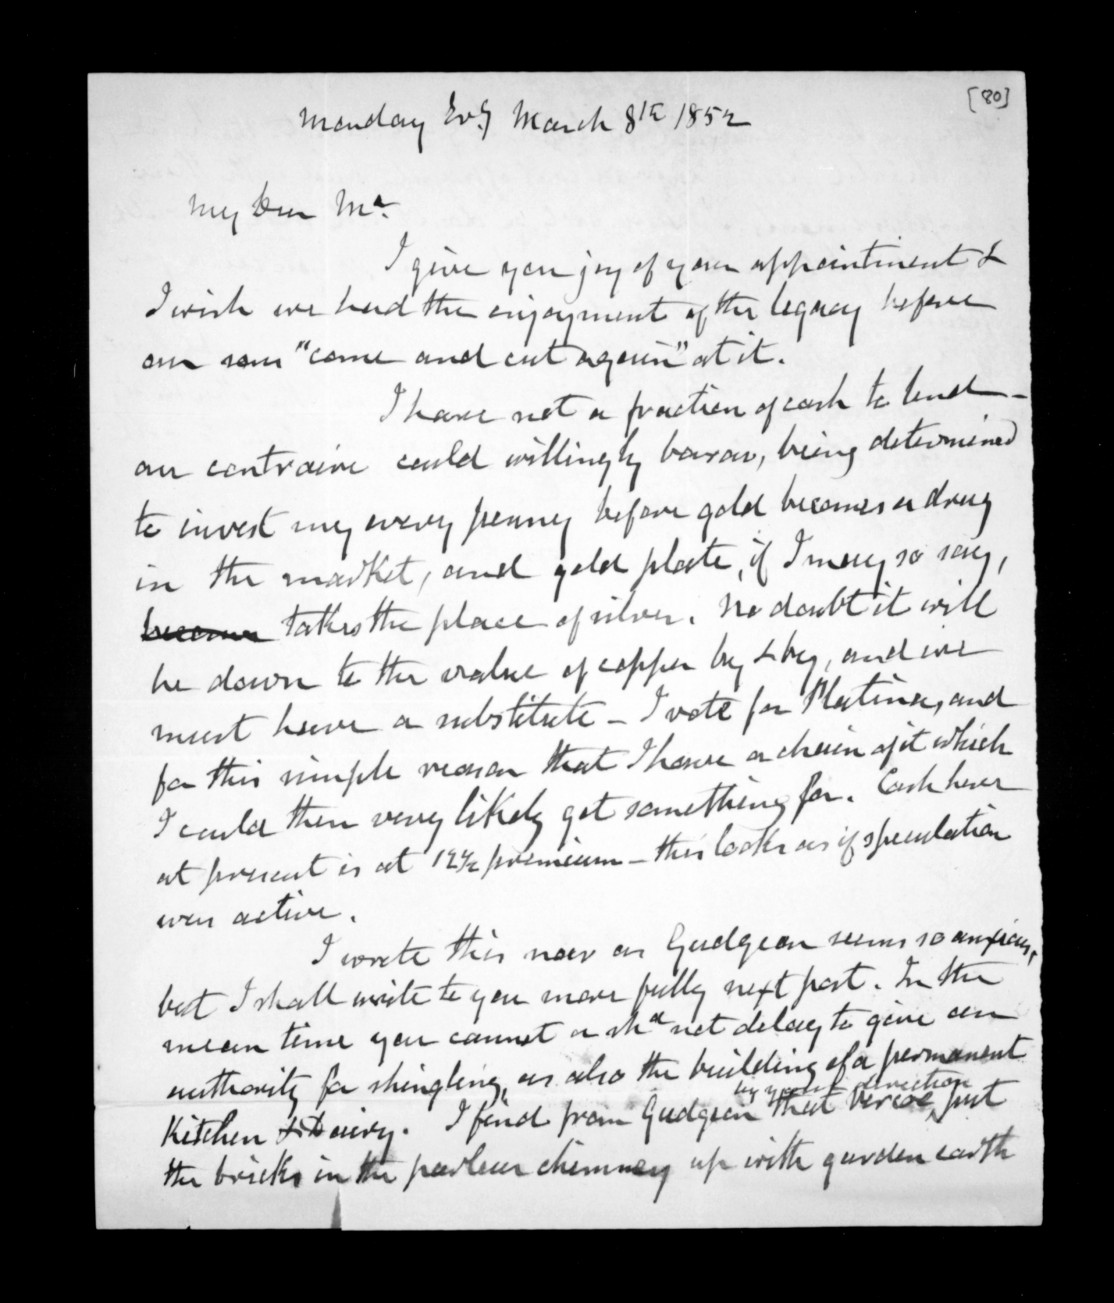 [80]
Monday Evg March 8th 1852
My Dear Mc.
I give you joy of your appointment &
I wish we had the enjoyment of the legacy before
our sons "come and cut again" at it.
I have not a fraction of cash to lend -
au contraire could willingly borow, being determined
to invest my every penny before gold becomes a drug
in the market, and gold plate, if I may so say,
become takes the place of silver. No doubt it will
be down to the value of copper by & by, and we
must have a substitute - I vote for Platina, and
for this simple reason that I have a chain of it which
I could then very likely get something for. Cash here
at present is at 12½ premium - this looks as if speculation
were active.
I wrote this now as Gudgeon seems so anxious,
but I shall write to you more fully next post. In the
mean time you cannot or shd not delay to give an
authority for shingling, as also the building of a permanent
by your direction
Kitchen & Dairy. I find from Gudgeon that Vercoe, put
the bricks in the parlour chimney up with garden earth